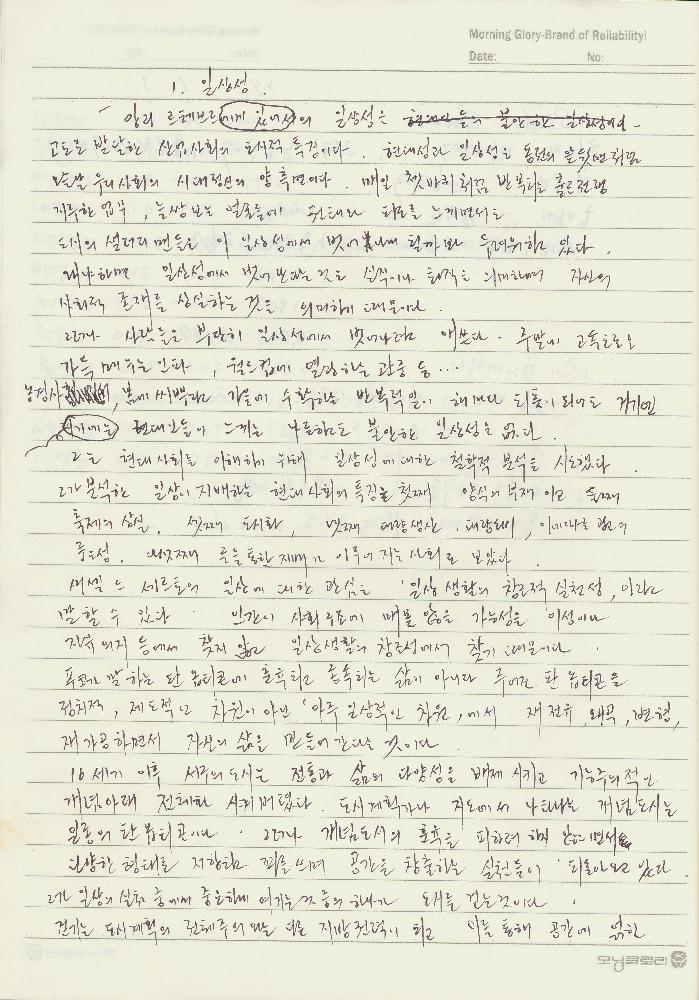 Morning Glory-Brand of Reliability!
Date: No:
1. 일상성.
앙리 르페브르에게 있어서의 일상성은 현대인들의 불안한 일상성이다.
고도로 발달한 산업사회의 도시적 특징이다. 현대성과 일상성은 동전의 앞뒷면처럼
오늘날 우리사회의 시대정신의 양 측면이다. 매일 쳇바퀴처럼 반복되는 출근전쟁
지루한 업무, 늘쌍 보는 얼굴들에 권태와 피로를 느끼면서도
도시의 샐러리맨들은 이 일상성에서 벗어나게 될까봐 두려워하고 있다.
왜냐하면 일상성에서 벗어난다는 것은 실직이나 퇴직을 의미하며 자신의
사회적 존재를 상실하는 것을 의미하기 때문이다.
그러나 사람들은 부단히 일상성에서 벗어나려고 애쓴다. 주말에 고속도로를
가득 메우는 인파, 월드컵에 열광하는 관중 등...
농경사회, 봄에 씨뿌리고 가을에 수확하는 반복적일이 해마다 되풀이 되어도 거기엔
현대인들이 느끼는 나른하고도 불안한 일상성은 없다.
그는 현대사회를 이해하기 위해 일상성에 대한 철학적 분석을 시도했다.
그가 분석한 일상이 지배하는 현대사회의 특징을 첫째 양식의 부재이고 둘째
축제의 상실. 셋째 도시화, 넷째 대량생산, 대량소비, 이에따르는
. 다섯째 를 통한 가 이루어지는 사회로 보았다.
미셸 드 세르토의 일상에 대한 관심은 '일상생활의 창조적 실천성'이라고
말할 수 있다. 인간이 사회구조에 매몰 않을 가능성을 이성이나
자유의지 등에서 찾지 않고 일상생활의 창조성에서 찾기 때문이다.
푸코가 말하는 판옵티콘에 훈육되고 종속되는 삶이 아니라 주어진 판옵티콘을
정치적, 제도적인 차원이 아닌 '아주 일상적인 차원'에서 재전유, 왜곡, 변형,
재가공하면서 자신의 삶을 만들어 간다는 것이다.
16세기 이후 서구의 도시는 전통과 삶의 다양성을 배제시키고 기능주의적인
개념아래 전체화 시켜버렸다. 도시계획가나 지도에서 나타나는 개념도시는
일종의 판옵티콘이다. 그러나 개념도시의 훈육을 피하려 하지 않으면서도
다양한 형태로 저항하고 꾀를 쓰며 공간을 창출하는 실천들이 되돌아오고 있다.
그가 일상의 실천 중에서 중요하게 여기는것 중의 하나가 도시를 걷는것이다.
걷기는 도시계획의 전체주의 지방권력이 되고 이를 통해 공간에 얽힌
모닝글로리